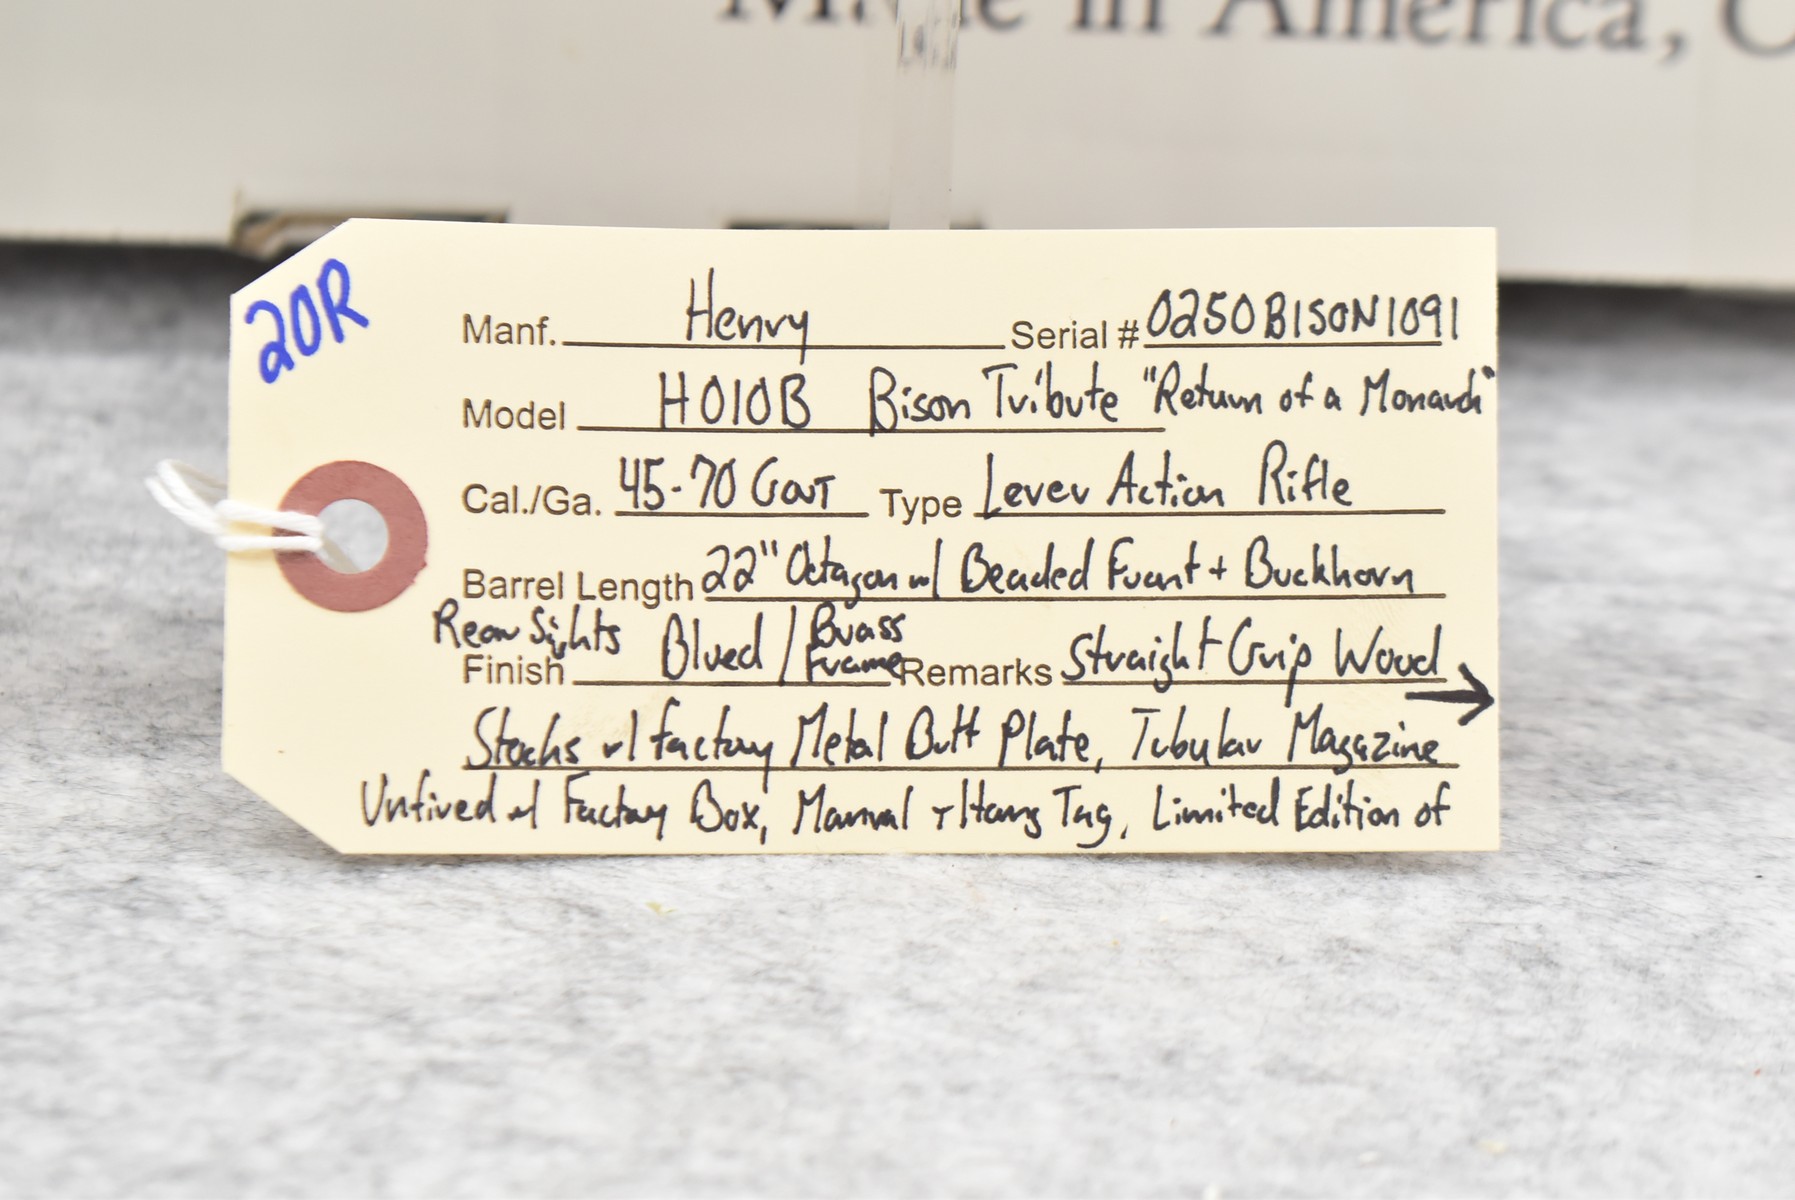 Made in America, O
20R
Manf. Henry Serial # 0250BISON1091
Model H010B Bison Tribute "Return of a Monarch"
Cal./Ga. 45-70 Govt Type Lever Action Rifle
Barrel Length 22" Octagon w/ Beaded Front + Buckhorn
Rear Sights
Finish Blued / Brass Frame Remarks Straight Grip Wood →
Stocks w/ factory Metal Butt Plate, Tubular Magazine
Unfired w/ Factory Box, Manual + Hang Tag, Limited Edition of